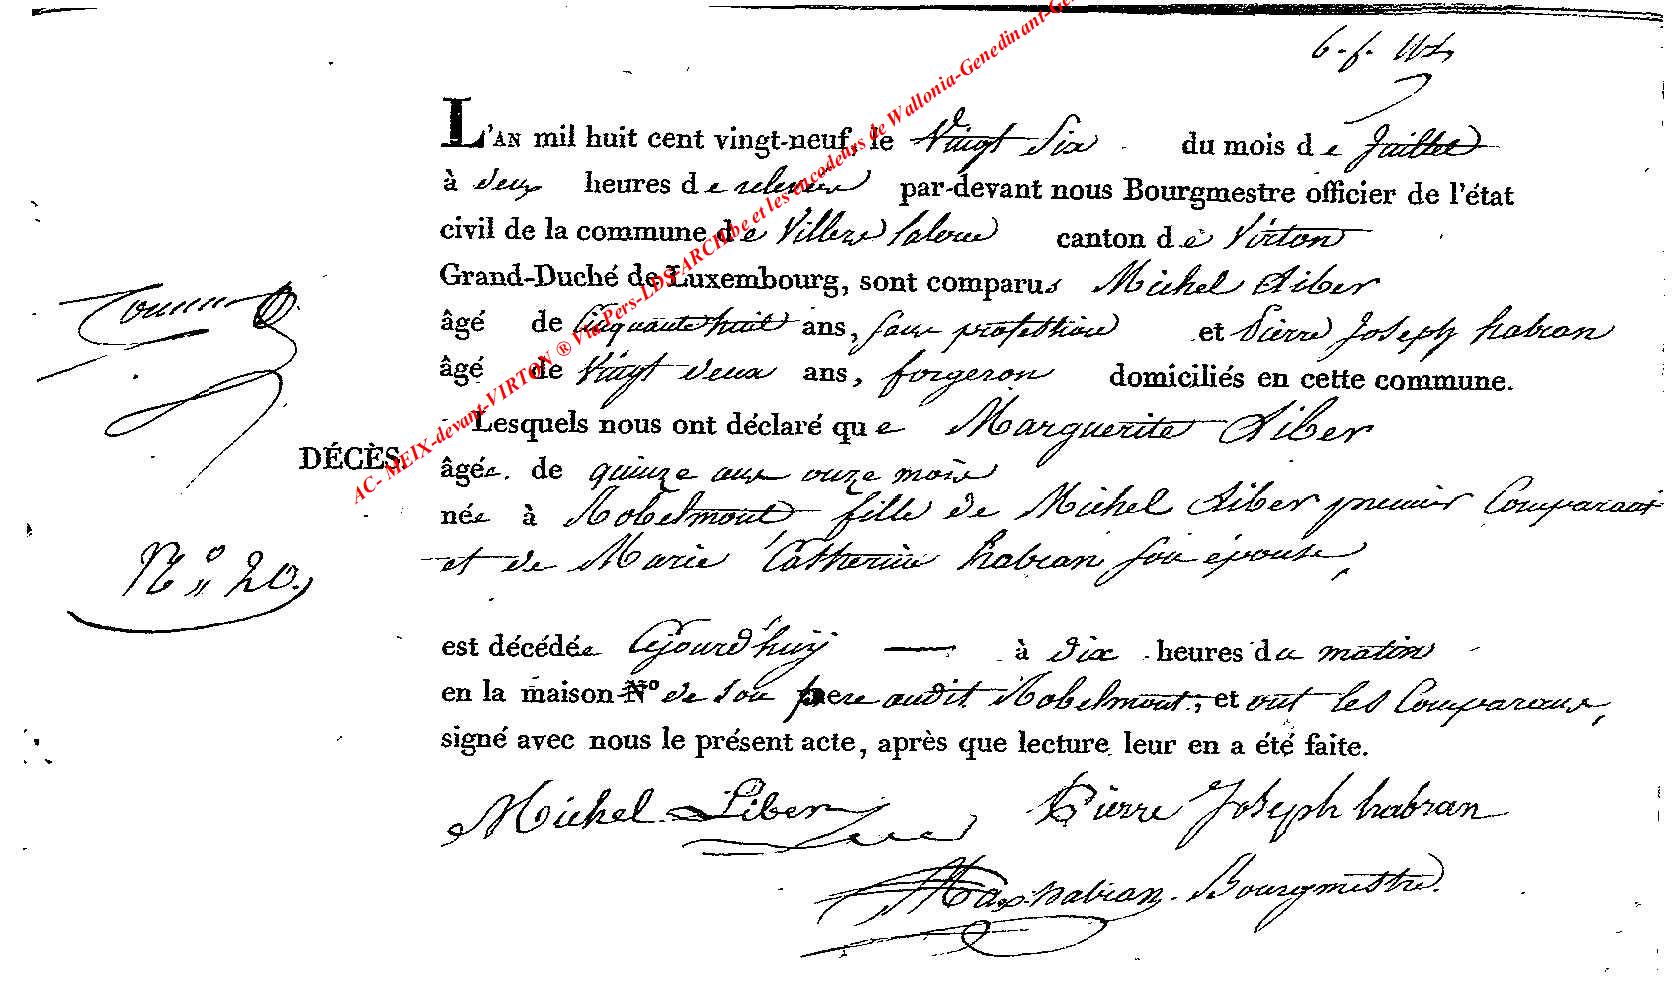 6. f.
L'AN mil huit cent vingt-neuf, le Vingt Six du mois de Juillet
à deux heures de relevée par-devant nous Bourgmestre officier de l'état
civil de la commune de Villers laloue canton de Virton
Grand-Duché de Luxembourg, sont comparus Michel Liber
âgé de Cinquante huit ans, sans profession et Pierre Joseph habran
âgé de Vingt deux ans, forgeron domiciliés en cette commune.
Lesquels nous ont déclaré que Marguerite Liber
DÉCÈS.
âgée de quinze ans onze mois
née à Robelmont fille de Michel Liber premier Comparant
et de Marie Catherine habran son épouse,
N° 20.
est décédée Ajourd'huy — à dix heures du matin
en la maison N° de son pere audit Robelmont; et ont les Comparans,
signé avec nous le présent acte, après que lecture leur en a été faite.
Michel Liber Pierre Joseph habran
habran Bourgmestre.
AC- MEIX-devant-VIRTON ® Via Pers-LDS-ARCH.be et les encodeurs de Wallonia-Genedinant-Ge